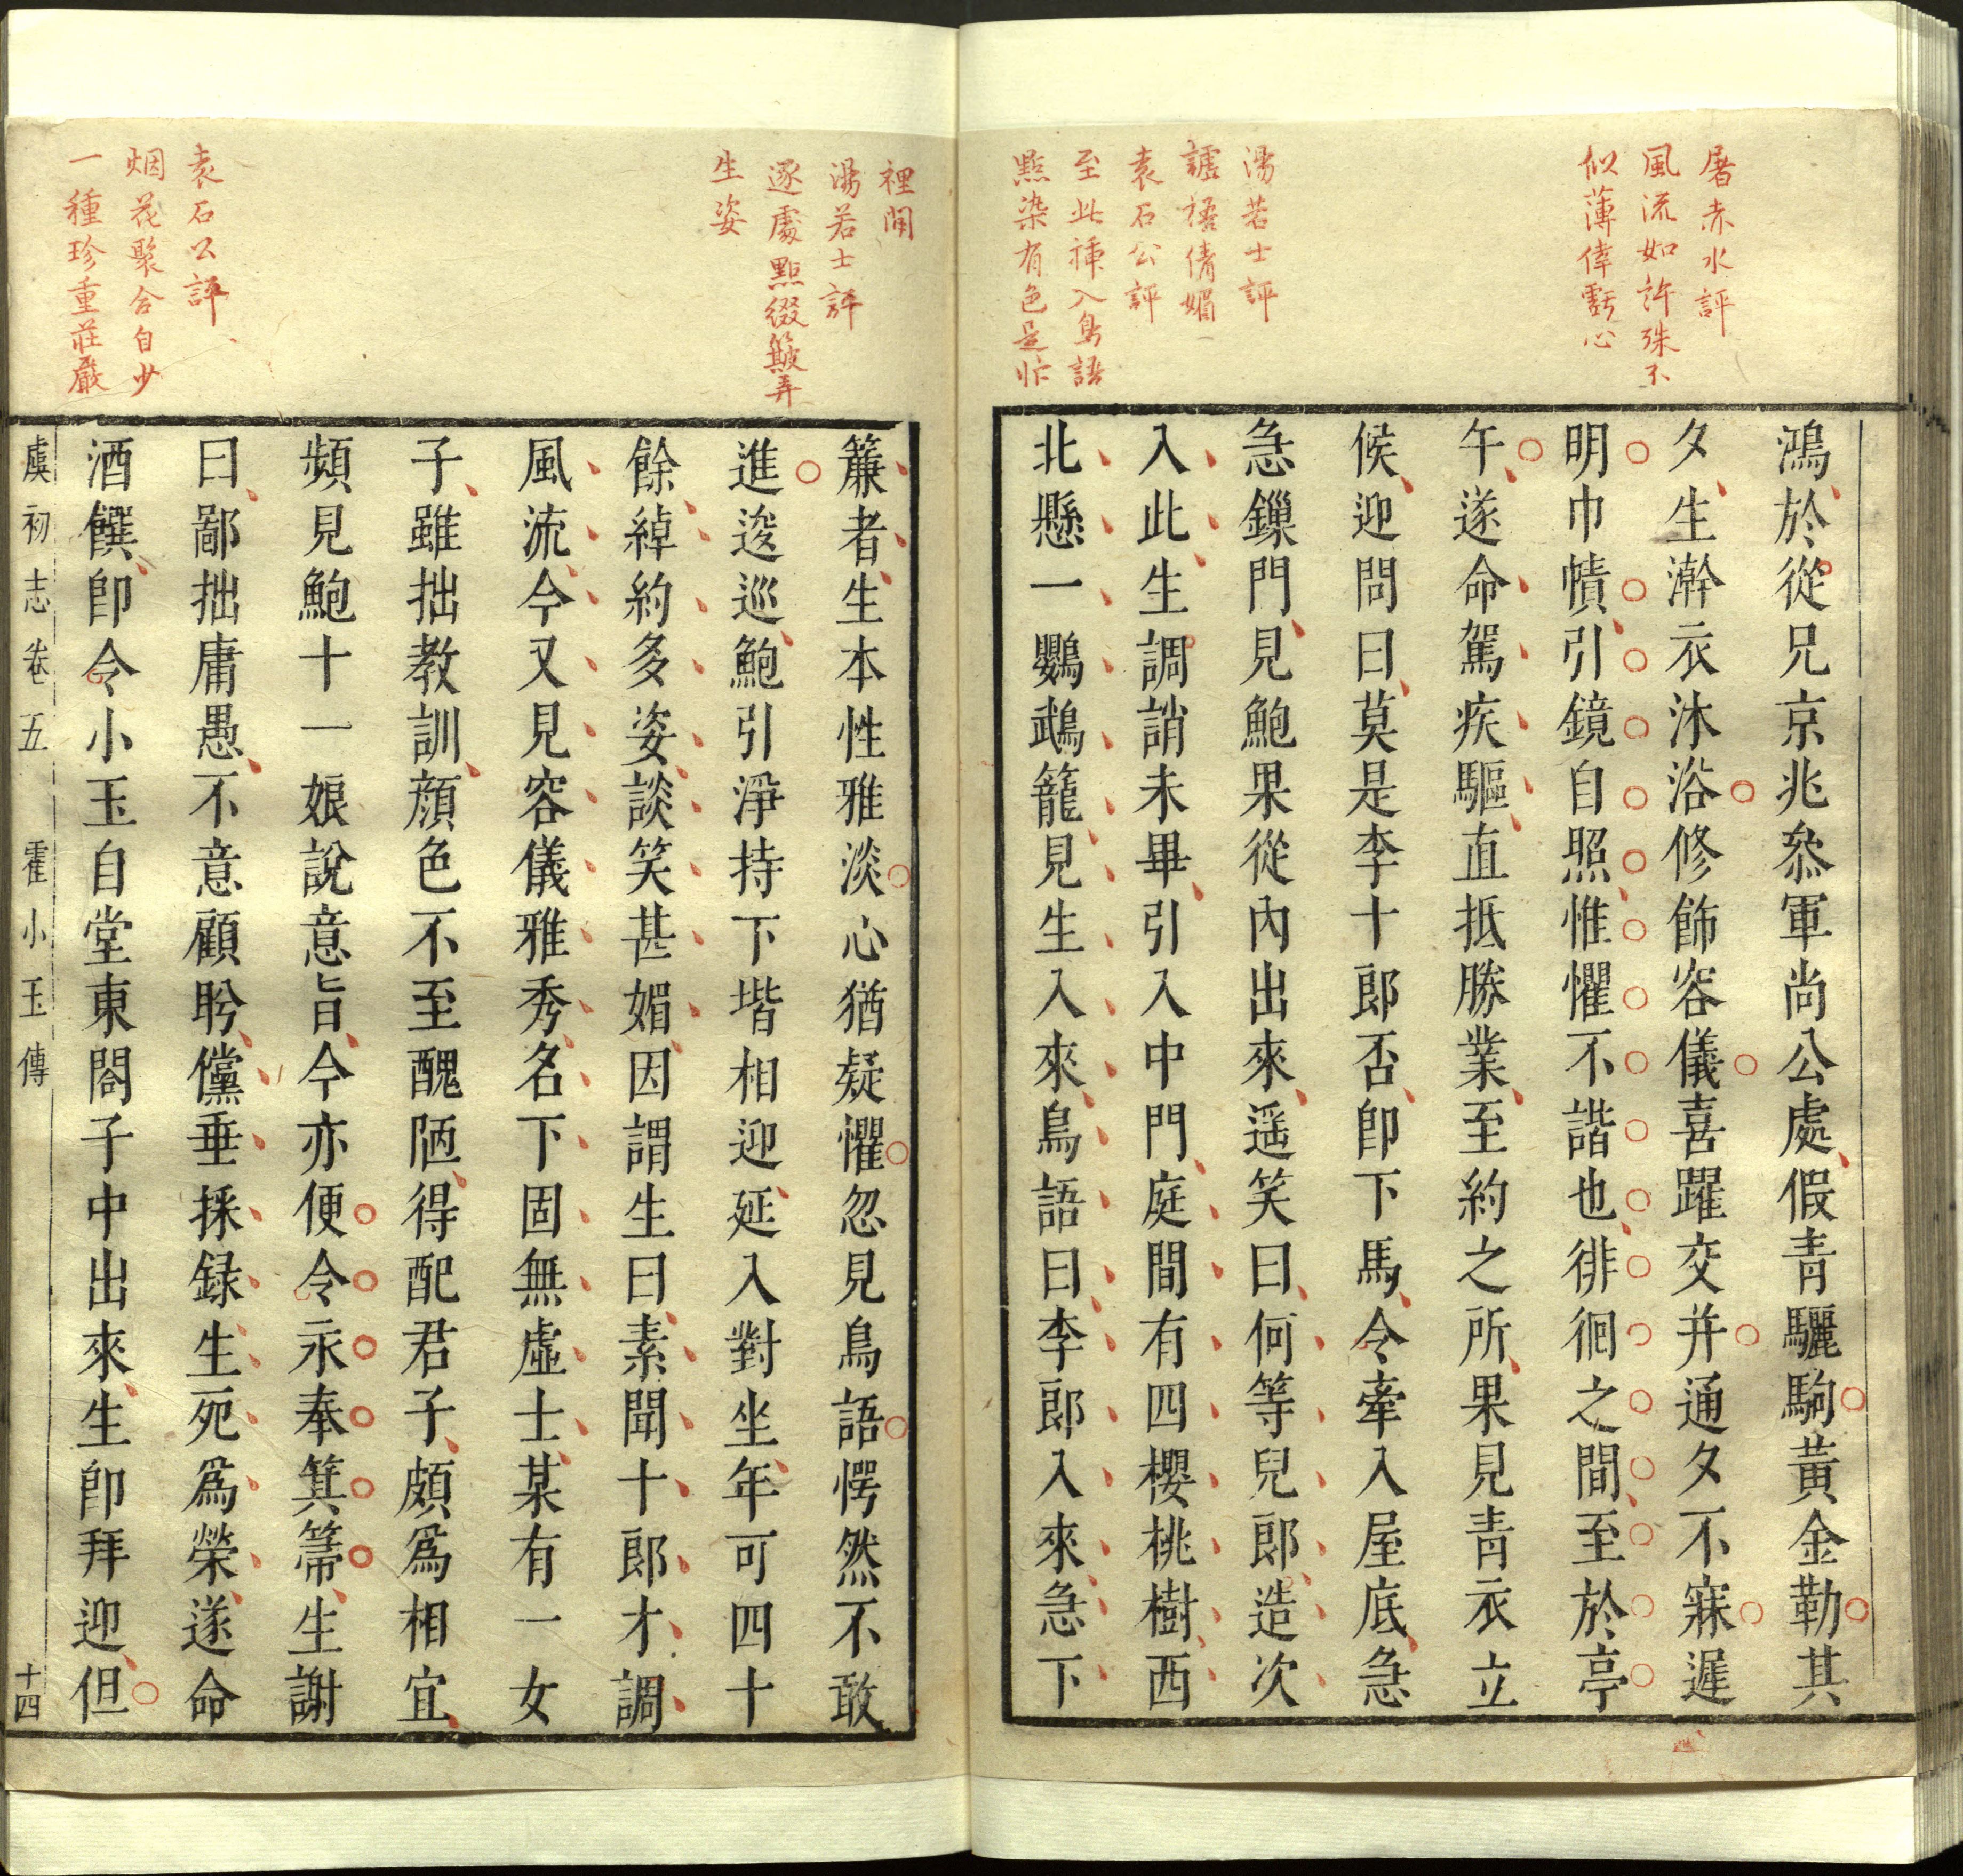 屠赤水評
風流如許殊不
似薄倖虧心
湯若士評
謔褻倩媚
袁石公評
至此種入鳥語
點染有色是忙
鴻於從兄京兆叅軍尚公處假青驪駒黃金勒其
夕生澣衣沐浴修飾容儀喜躍交并通夕不寐遲
明巾幘引鏡自照惟懼不諧也徘徊之間至於亭
午遂命駕疾驅直抵勝業至約之所果見青衣立
候迎問曰莫是李十郎否卽下馬令牽入屋底急
急鏁門見鮑果從內出來遥笑曰何等兒郎造次
入此生調誚未畢引入中門庭間有四櫻桃樹西
北懸一鸚鵡籠見生入來鳥語曰李郎入來急下
裡閒
湯若士評
逐處點綴簸弄
生姿
袁石公評
烟花聚合自少
一種珍重莊嚴
簾者生本性雅淡心猶疑懼忽見鳥語愕然不敢
進逡巡鮑引淨持下堦相迎延入對坐年可四十
餘綽約多姿談笑甚媚因謂生曰素聞十郎才調
風流今又見容儀雅秀名下固無虛士某有一女
子雖拙教訓顏色不至醜陋得配君子頗爲相宜
頻見鮑十一娘說意旨今亦便令永奉箕箒生謝
曰鄙拙庸愚不意顧盻儻垂採録生死爲榮遂命
酒饌卽令小玉自堂東閤子中出來生卽拜迎但
虞初志卷五　霍小玉傳　十四